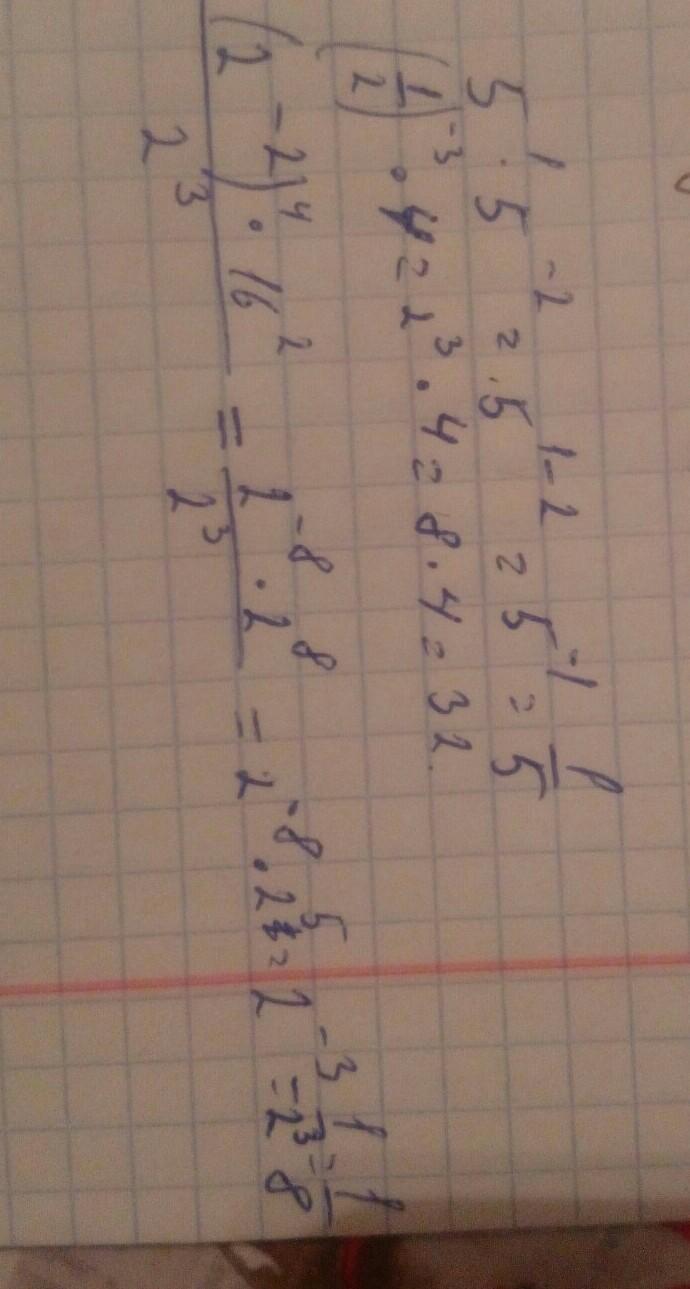 5¹ · 5⁻² = 5¹⁻² = 5⁻¹ = 1/5
(1/2)⁻³ · 4 = 2³ · 4 = 8 · 4 = 32
((2⁻²)⁴ · 16²)/2³ = (2⁻⁸ · 2⁸)/2³ = 2⁻⁸ · 2⁵ = 2⁻³ = 1/2³ = 1/8